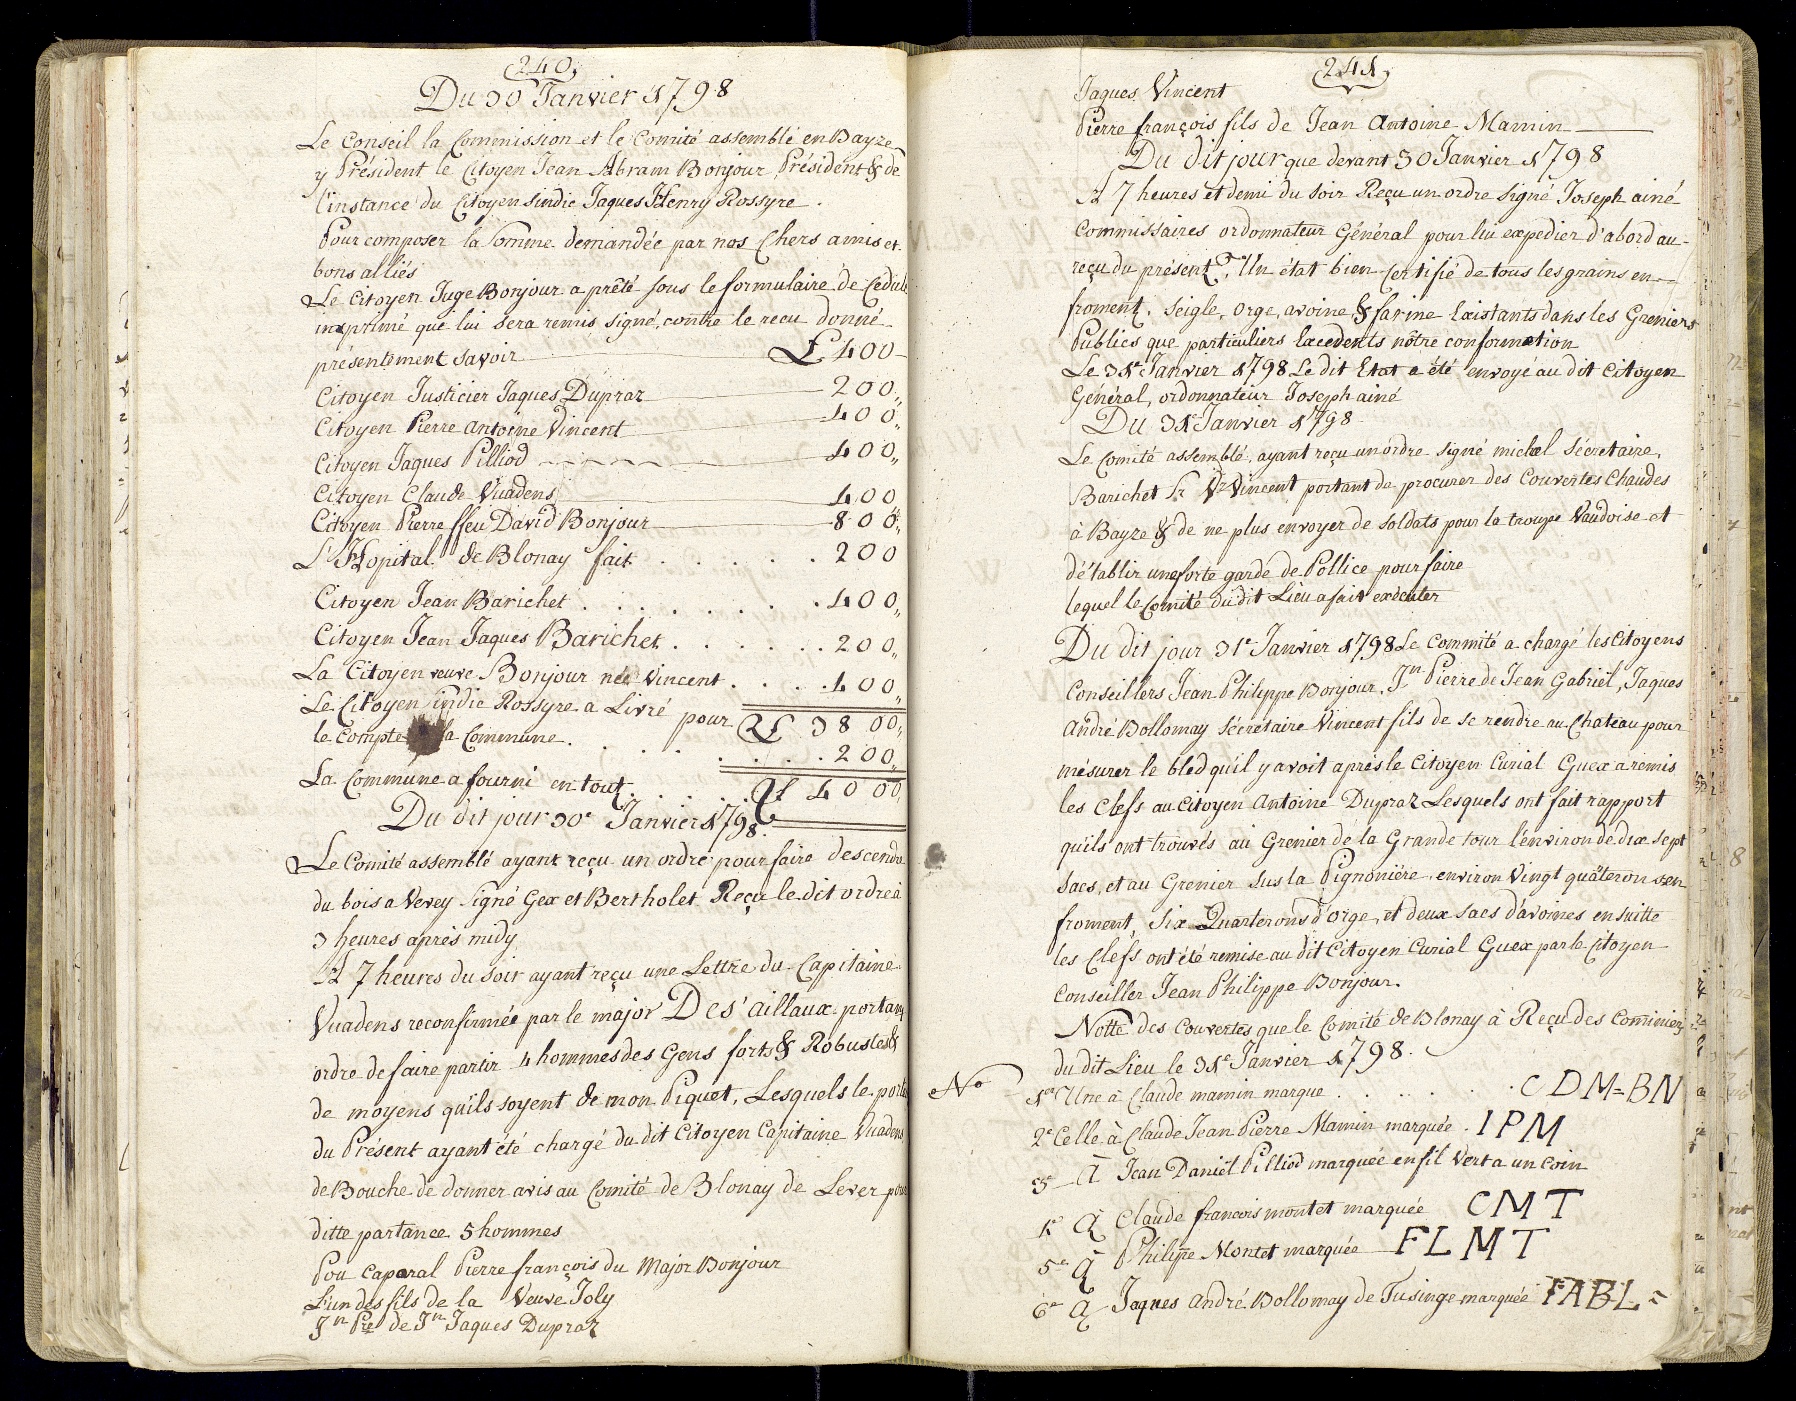 240
Du 30 Janvier 1798
Le Conseil la Commission et le Comité assemblé en Bayze
y Président le Citoyen Jean Abram Bonjour Président & de
l'instance du Citoyen sindic Jaques Henry Rossyre.
Pour composer la Somme demandée par nos Chers amis et
bons alliés
Le Citoyen Juge Bonjour a prêté sous le formulaire de Cedule
imprimé que lui sera remis signé, contre le recu donné
présentement savoir £ 400
Citoyen Justicier Jaques Dupraz 200,,
Citoyen Pierre Antoine Vincent 400,,
Citoyen Jaques Pilliod 400,,
Citoyen Claude Vuadens 400
Citoyen Pierre ffeu David Bonjour 800,,
L'Hopital de Blonay fait 200
Citoyen Jean Barichet 400,,
Citoyen Jean Jaques Barichet 200,,
La Citoyen veuve Bonjour née Vincent 400,,
Le Citoyen sindic Rossyre a Livré pour £ 3800,,
le Compte la Commune 200,,
La Commune a fourni en tout £ 4000,,
Du dit jour 30e Janvier 1798
Le Comité assemblé ayant reçu un ordre pour faire descendre
du bois a Vevey signé Gex et Bertholet Reçu le dit ordre à
3 heures après midy
A 7 heures du soir ayant reçu une Lettre du Capitaine
Vuadens reconfirmée par le major Des'aillaux portant
ordre de faire partir 4 hommes des Gens forts & Robustes &
de moyens qu'ils soyent de mon Piquet, Lesquels le porteur
du Présent ayant été chargé du dit Citoyen Capitaine Vuadens
de Bouche de donner avis au Comité de Blonay de Lever pour
ditte partance 5 hommes
Pou Caporal Pierre françois du Major Bonjour
L'un des fils de la Veuve Joly
Jn Pre de Jn Jaques Dupraz
241
Jaques Vincent
Pierre françois fils de Jean Antoine Mamin
Du dit jour que devant 30 Janvier 1798
A 7 heures et demi du soir Reçu un ordre signé Joseph ainé
Commissaires ordonnateur Général pour lui expedier d'abord au
reçu du présent, Un état bien Certifié de tous les grains en
froment, Seigle, orge, avoine & farine Existants dans les Greniers
Publics que particuliers nôtre conformetion
Le 31e Janvier 1798 Le dit Etat a été envoyé au dit Citoyen
Général, ordonnateur Joseph ainé
Du 31e Janvier 1798
Le Comité assemblé, ayant reçu un ordre signé michel Sécretaire,
Barichet Vincent portant de procurer des Couvertes Chaudes
à Bayze & de ne plus envoyer de soldats pour la troupe Vaudoise et
d'établir une forte garde de Pollice pour faire
lequel le Comité du dit Lieu a fait exécuter
Du dit jour 31e Janvier 1798 Le Commité a chargé les Citoyens
Conseillers Jean Philippe Bonjour, Jn Pierre de Jean Gabriel, Jaques
André Bollomay sécretaire Vincent fils de se rendre au Chateau pour
mésurer le bled qu'il y avoit après le Citoyen Curial Guex a remis
les Clefs au Citoyen Antoine Dupraz Lesquels ont fait rapport
qu'ils ont trouvés au Grenier de la Grande tour l'environ de dix sept
Sacs, et au Grenier sus la Pignonière, environ Vingt quâteron s en
froment, Six Quarterons d'orge, et deux sacs d'avoines ensuitte
les Clefs ont été remise au dit Citoyen Curial Guex par le Citoyen
Conseiller Jean Philippe Bonjour.
Notte des Couvertes que le Comité de Blonay à Reçu des Cominiers
du dit Lieu le 31e Janvier 1798.
No 1e Une à Claude mamin marque CDM=BN
2e Celle à Claude Jean Pierre Mamin marquée IPM
3e A Jean Daniel Pilliod marquée en fil Vert a un Coin
4e A Claude francois montet marquée CMT
5e A Philipe Montet marquée FLMT
6e A Jaques André Bollomay de Tusinge marquée IABL=